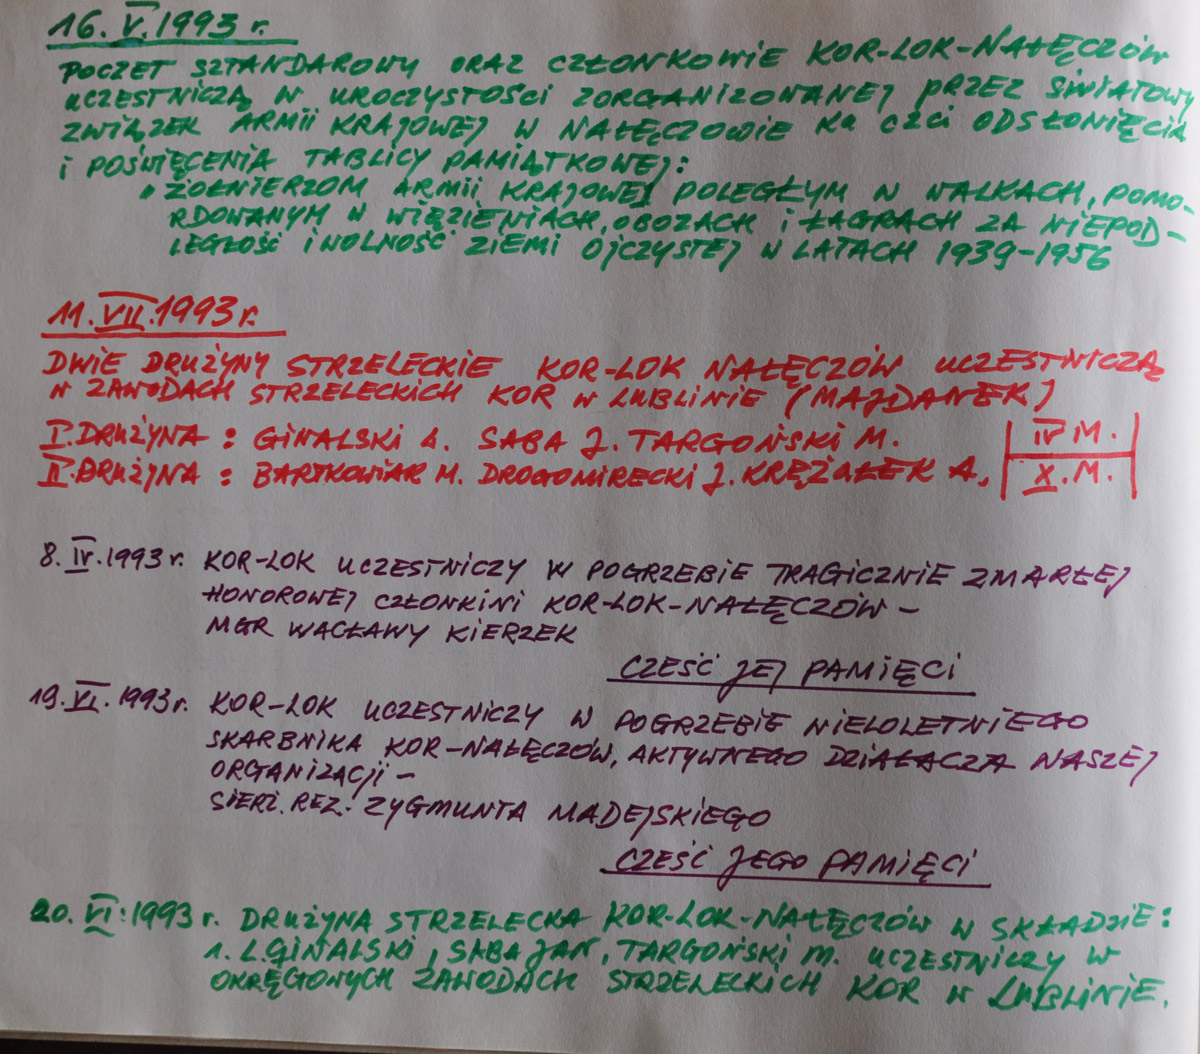 16.V.1993 r.
POCZET SZTANDAROWY ORAZ CZŁONKOWIE KOR-LOK-NAŁĘCZÓW
UCZESTNICZĄ W UROCZYSTOŚCI ZORGANIZOWANEJ PRZEZ ŚWIATOWY
ZWIĄZEK ARMII KRAJOWEJ W NAŁĘCZOWIE KU CZCI ODSŁONIĘCIA
I POŚWIĘCENIA TABLICY PAMIĄTKOWEJ:
„ŻOŁNIERZOM ARMII KRAJOWEJ POLEGŁYM W WALKACH, POMO-
RDOWANYM W WIĘZIENIACH, OBOZACH I ŁAGRACH ZA NIEPOD-
LEGŁOŚĆ I WOLNOŚĆ ZIEMI OJCZYSTEJ W LATACH 1939-1956
11.VII.1993 r.
DWIE DRUŻYNY STRZELECKIE KOR-LOK NAŁĘCZÓW UCZESTNICZĄ
W ZAWODACH STRZELECKICH KOR W LUBLINIE (MAJDANEK)
I.DRUŻYNA: GINALSKI Ł. SABA J. TARGOŃSKI M. IV M.
II.DRUŻYNA: BARTKOWIAK M. DROGOMIRECKI J. KRĘŻAŁEK A, X.M.
8.IV.1993 r. KOR-LOK UCZESTNICZY W POGRZEBIE TRAGICZNIE ZMARŁEJ
HONOROWEJ CZŁONKINI KOR-LOK-NAŁĘCZÓW-
MGR WACŁAWY KIERZEK
CZEŚĆ JEJ PAMIĘCI
19.VI.1993 r. KOR-LOK UCZESTNICZY W POGRZEBIE WIELOLETNIEGO
SKARBNIKA KOR-NAŁĘCZÓW, AKTYWNEGO DZIAŁACZA NASZEJ
ORGANIZACJI-
SIERŻ. REZ. ZYGMUNTA MADEJSKIEGO
CZEŚĆ JEGO PAMIĘCI
20.VI.1993 r. DRUŻYNA STRZELECKA KOR-LOK-NAŁĘCZÓW W SKŁADZIE:
1. L.GINALSKI, SABA JAN, TARGOŃSKI M. UCZESTNICZY W
OKRĘGOWYCH ZAWODACH STRZELECKICH KOR W LUBLINIE.